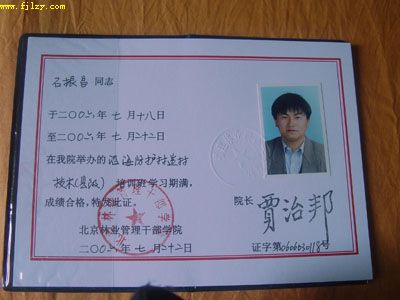 www.fjlzy.com
石振昌 同志
于二〇〇六年 七 月 十八日
至二〇〇六年 七 月二十二日
在我院举办的 沿海防护林造林
技术(县级) 培训班学习期满,
成绩合格,特发此证。
院长 贾治邦
北京林业管理干部学院
二〇〇六年 七 月二十二日
证字第0606030118号